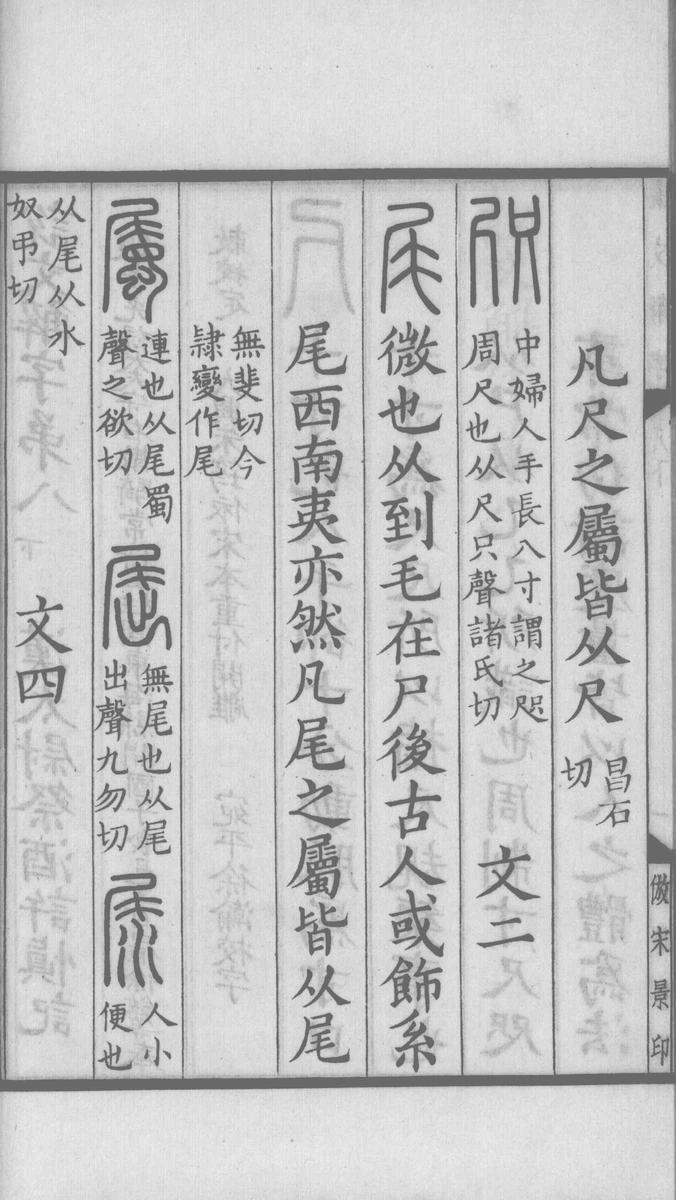 凡尺之屬皆从尺昌石切
咫中婦人手長八寸謂之咫周尺也从尺只聲諸氏切 文二
尾微也从到毛在尸後古人或飾系
尾西南夷亦然凡尾之屬皆从尾
無斐切今隷變作尾
屬連也从尾蜀聲之欲切 屈無尾也从尾出聲九勿切 尿人小便也
从尾从水奴弔切 文四
倣宋景印